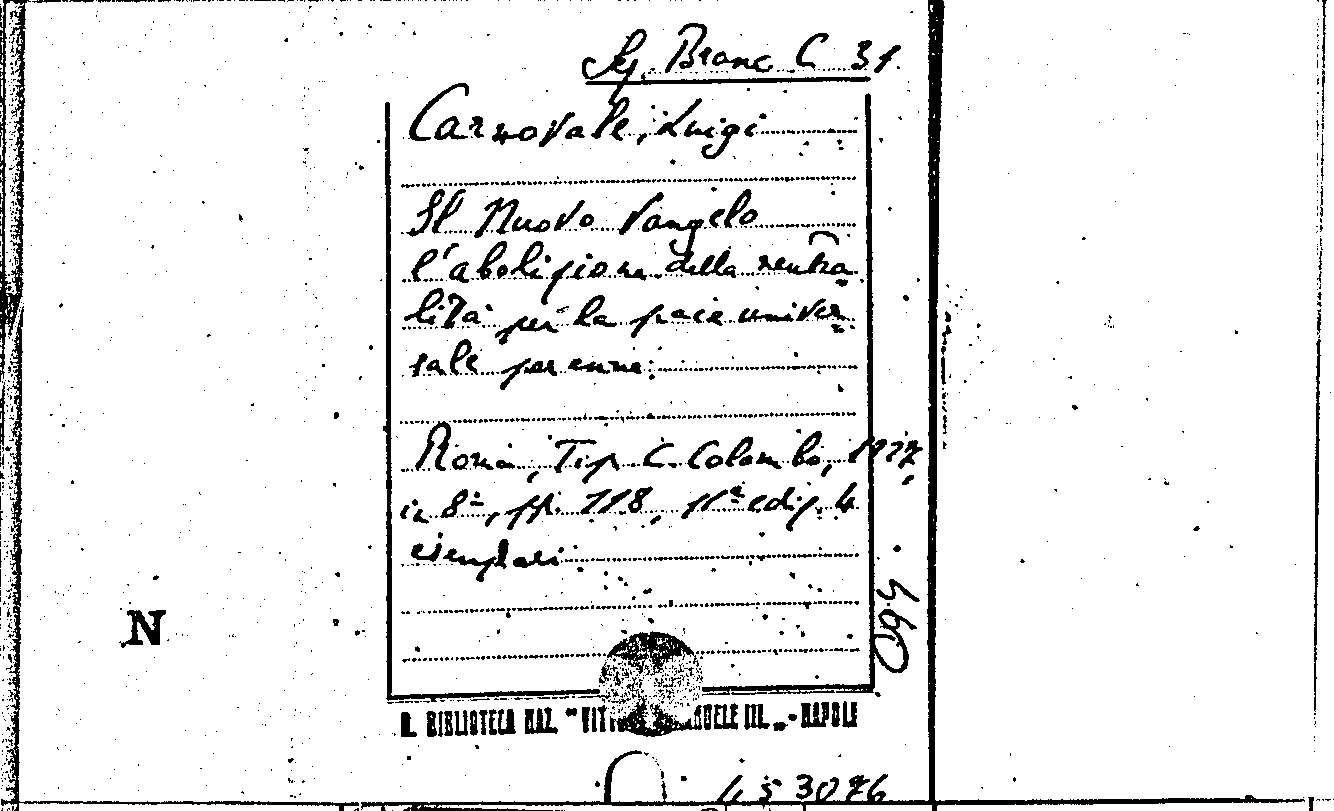 Branc C 31
Carnovale, Luigi
Il Nuovo Vangelo
l'abolizione della neutra
lità per la pace univer
sale perenne.
Roma, Tip. C. Colombo, 1922,
in 8º, pp. 118, 11ª ediz. 4
esemplari
N
R. BIBLIOTECA NAZ. "VITTORIO EMANUELE III." - NAPOLI
453076